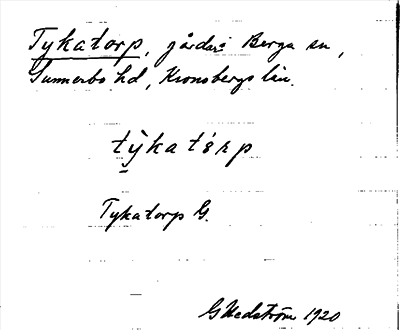 Tykatorp, gårdar i Berga sn,
Sunnerbo hd, Kronobergs län.
tỳkatórp
Tykatorp G.
G Hedström 1920